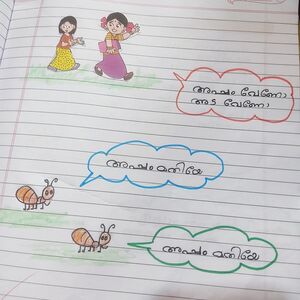 അപ്പം വേണോ
അട വേണോ
അപ്പം മതിയേ
അപ്പം മതിയേ